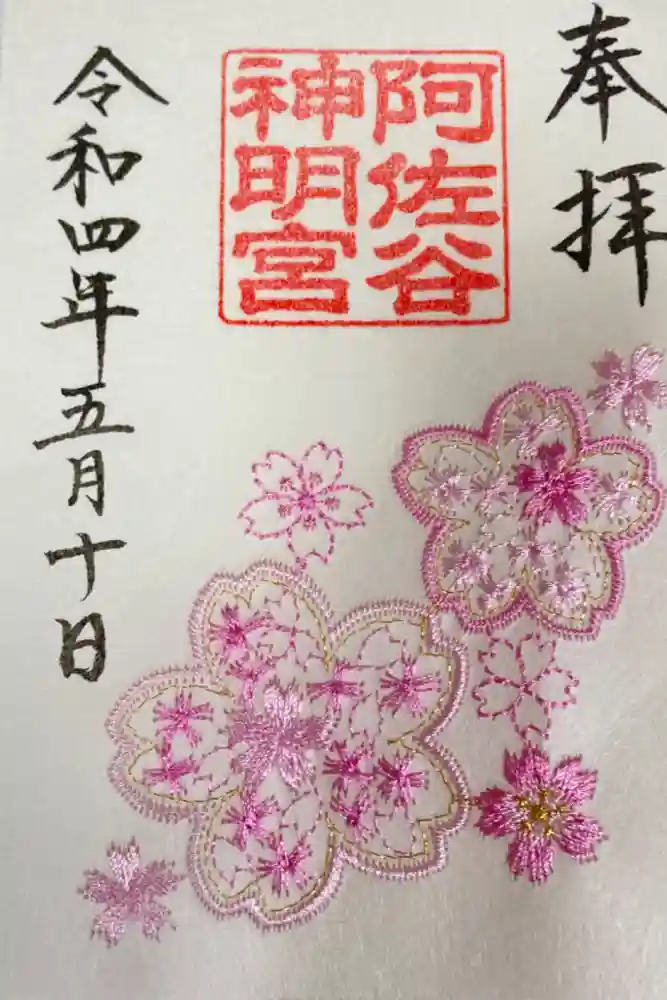 奉拝
阿佐谷
神明宮
令和四年五月十日